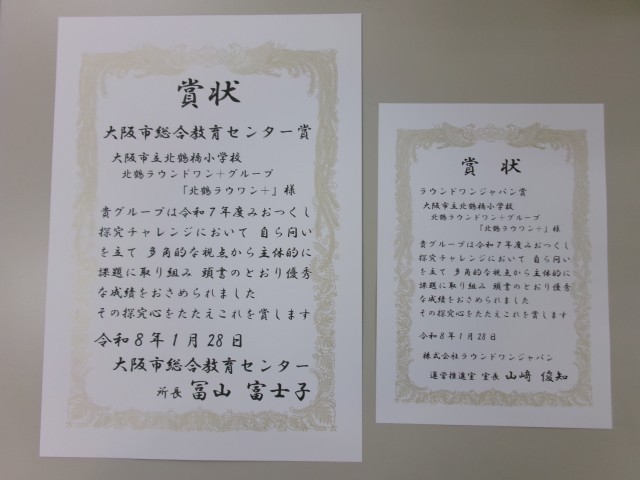 賞状
大阪市総合教育センター賞
大阪市立北鶴橋小学校
北鶴ラウンドワン＋グループ
「北鶴ラウワン＋」様
貴グループは令和７年度みおつくし
探究チャレンジにおいて 自ら問い
を立て 多角的な視点から主体的に
課題に取り組み 頭書のとおり優秀
な成績をおさめられました
その探究心をたたえこれを賞します
令和８年１月28日
大阪市総合教育センター
所長 冨山 富士子
賞状
ラウンドワンジャパン賞
大阪市立北鶴橋小学校
北鶴ラウンドワン＋グループ
「北鶴ラウワン＋」様
貴グループは令和７年度みおつくし
探究チャレンジにおいて 自ら問い
を立て 多角的な視点から主体的に
課題に取り組み 頭書のとおり優秀
な成績をおさめられました
その探究心をたたえこれを賞します
令和８年１月28日
株式会社ラウンドワンジャパン
運営推進室 室長 山﨑 俊知